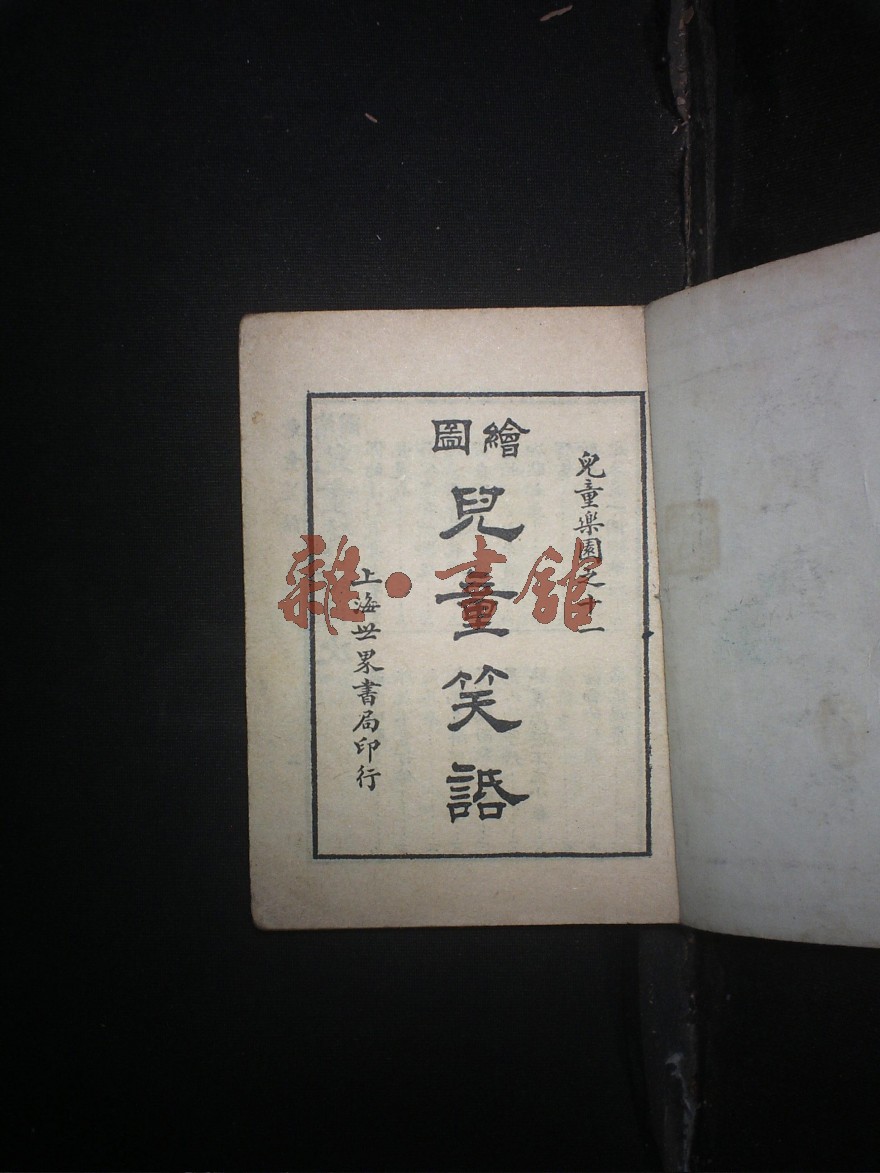 兒童樂園之十一
繪圖
兒童笑話
上海世界書局印行
雜·書館